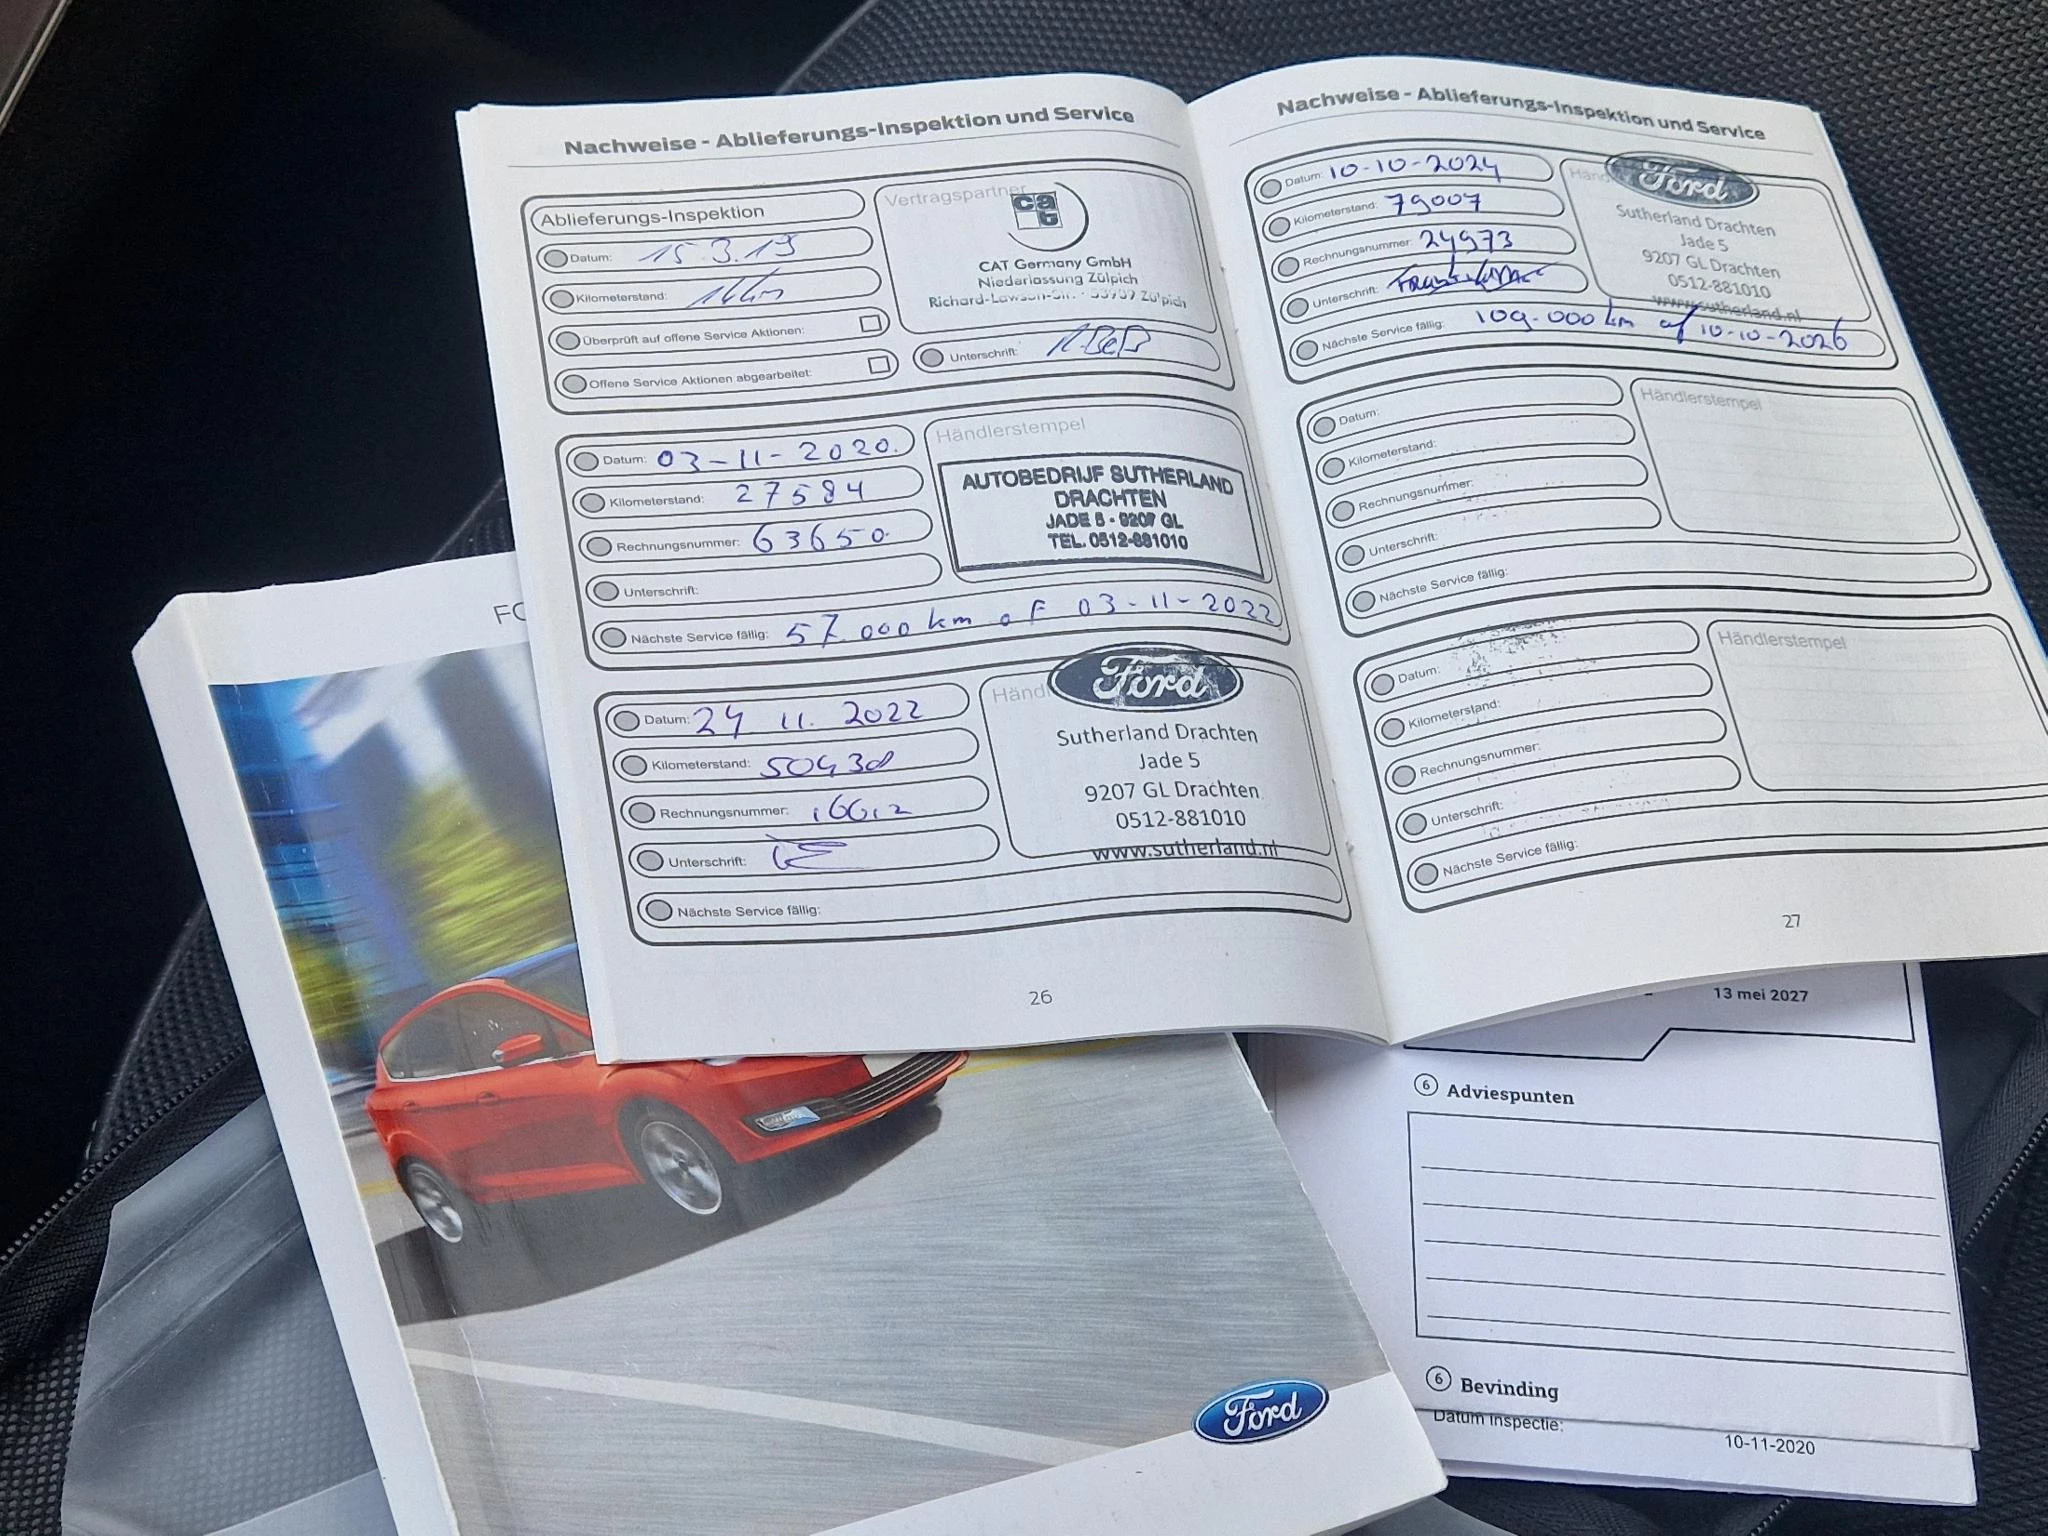 Nachweise - Ablieferungs-Inspektion und Service
Ablieferungs-Inspektion
Datum: 15.3.19
Kilometerstand: 14km
Überprüft auf offene Service Aktionen:
Offene Service Aktionen abgearbeitet:
Vertragspartner
cat
CAT Germany GmbH
Niederlassung Zülpich
Richard-Lawson-Str. · 53909 Zülpich
Unterschrift:
Datum: 03-11-2020.
Kilometerstand: 27584
Rechnungsnummer: 63650.
Unterschrift:
Nächste Service fällig: 57.000 km of 03-11-2022
Händlerstempel
AUTOBEDRIJF SUTHERLAND
DRACHTEN
JADE 5 - 9207 GL
TEL. 0512-881010
Datum: 24 11. 2022
Kilometerstand:
Rechnungsnummer:
Unterschrift:
Nächste Service fällig:
Händ
Ford
Sutherland Drachten
Jade 5
9207 GL Drachten
0512-881010
www.sutherland.nl
26
Nachweise - Ablieferungs-Inspektion und Service
Datum: 10-10-2024
Kilometerstand: 79007
Rechnungsnummer: 24973
Unterschrift:
Nächste Service fällig: 109.000 km of 10-10-2026
Händ
Ford
Sutherland Drachten
Jade 5
9207 GL Drachten
0512-881010
www.sutherland.nl
Datum:
Kilometerstand:
Rechnungsnummer:
Unterschrift:
Nächste Service fällig:
Händlerstempel
Datum:
Kilometerstand:
Rechnungsnummer:
Unterschrift:
Nächste Service fällig:
Händlerstempel
27
FO
Ford
13 mei 2027
6 Adviespunten
6 Bevinding
Datum inspectie:
10-11-2020